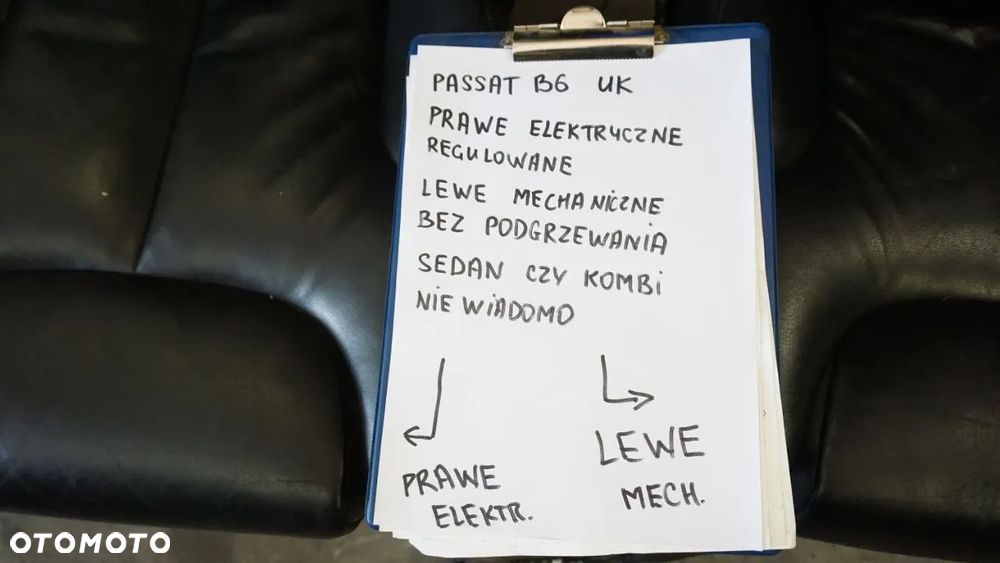 PASSAT B6 UK
PRAWE ELEKTRYCZNE
REGULOWANE
LEWE MECHANICZNE
BEZ PODGRZEWANIA
SEDAN CZY KOMBI
NIE WIADOMO
PRAWE
ELEKTR.
LEWE
MECH.
OTOMOTO